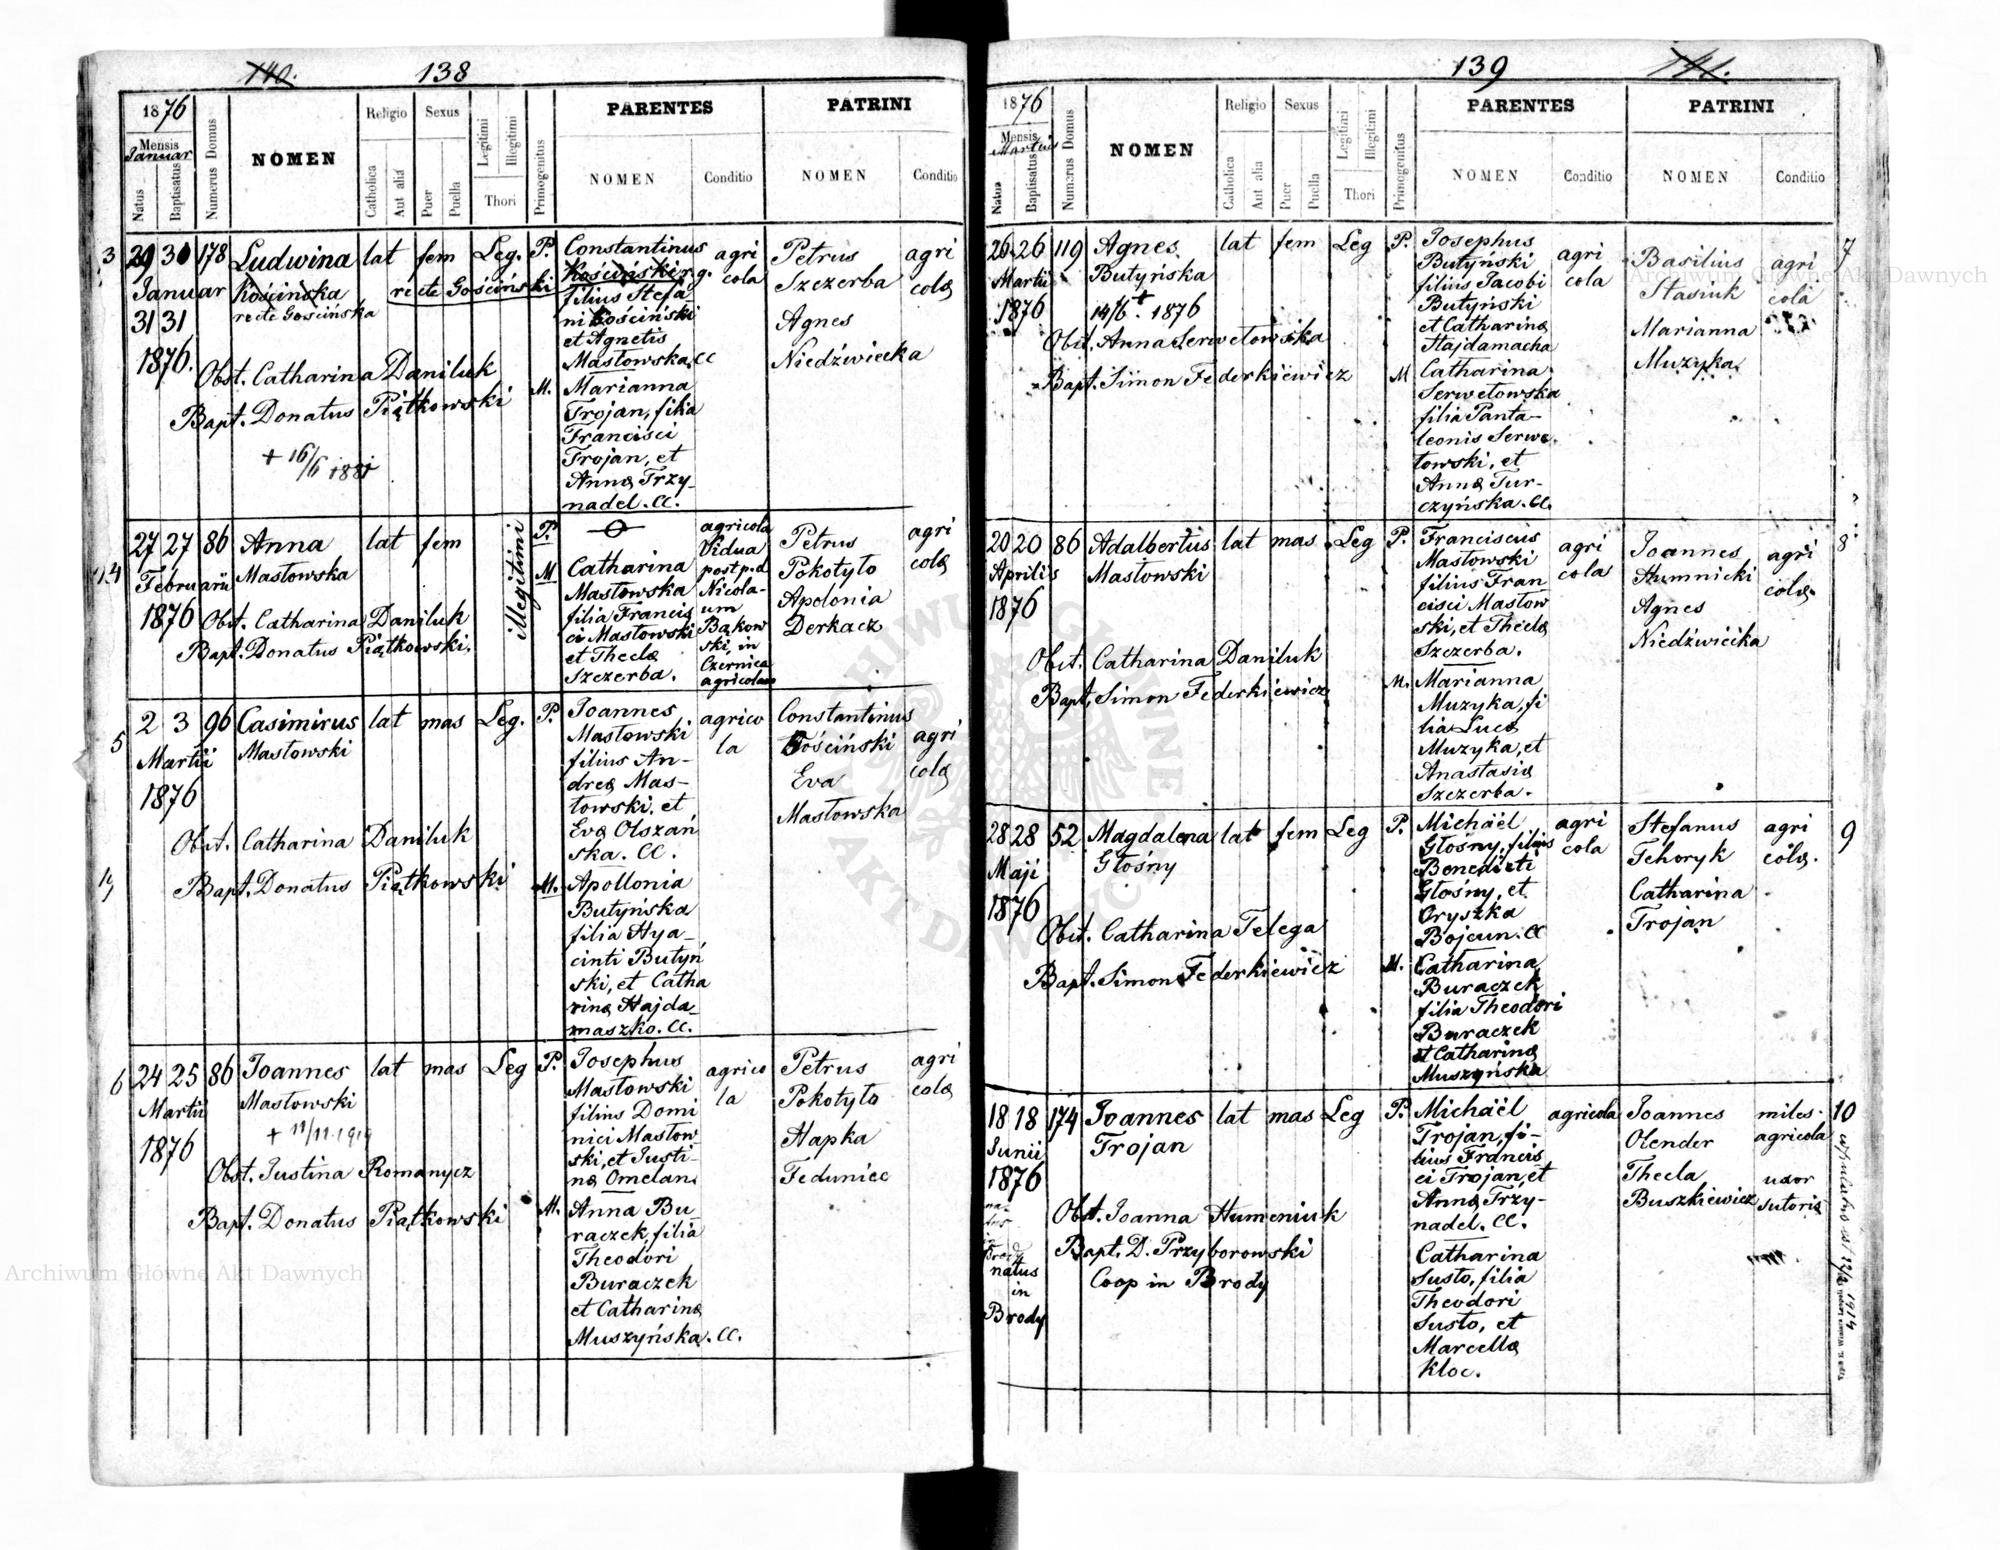 140. 138
1876
Mensis
Januar
Natus
Baptisatus
Numerus Domus
NOMEN
Religio
Catholica
Aut alia
Sexus
Puer
Puella
Legitimi
Illegitimi
Thori
Primogenitus
PARENTES
NOMEN
Conditio
PATRINI
NOMEN
Conditio
3
29 30 178
Januar
31 31
1876.
Ludwina
Kościńska
recte Gościńska
lat fem Leg. P.
recte Gościński
Obst. Catharina Daniluk
Bapt. Donatus Piątkowski
+ 16/6 1881
Constantinus
Kościński r.g.
filius Stefa
ni Gościński
et Agnetis
Masłowska. CC
M. Marianna
Trojan, filia
Francisci
Trojan, et
Annæ Trzy-
nadel. CC.
agri
cola
Petrus
Szczerba
Agnes
Niedźwiecka
agri
colæ
4
27 27 86
Februarii
1876
Anna
Masłowska
lat fem
Illegitimi
Obst. Catharina Daniluk
Bapt. Donatus Piątkowski.
P.
M Catharina
Masłowska
filia Francis
ci Masłowski
et Theclæ
Szczerba.
agricola
Vidua
post p.d
Nicola-
um
Bąkow
ski, in
Czernica
agricolam
Petrus
Pokotyło
Apolonia
Derkacz
agri
colæ
5
2 3 96
Martii
1876
Casimirus
Masłowski
lat mas Leg. P.
Obst. Catharina Daniluk
Bapt. Donatus Piątkowski
Joannes
Masłowski
filius An-
dreæ Mas-
łowski, et
Evæ Olszań
ska. CC.
M. Apollonia
Butyńska
filia Hya-
cinti Butyń
ski, et Catha
rinæ Hajda-
maszko. CC.
agrico
la
Constantinus
Gościński
Eva
Masłowska
agri
colæ
6
24 25 86
Martii
1876
Joannes
Masłowski
+ 11/11 1919
lat mas Leg P.
Obst. Justina Romanycz
Bapt. Donatus Piątkowski
Josephus
Masłowski
filius Domi
nici Masłow
ski, et Justi-
næ Omelan.
M. Anna Bu-
raczek, filia
Theodori
Buraczek
et Catharinæ
Muszyńska. CC.
agrico
la
Petrus
Pokotyło
Hapka
Feduniec
agri
colæ
139 141.
1876
Mensis
Martius
Natus
Baptisatus
Numerus Domus
NOMEN
Religio
Catholica
Aut alia
Sexus
Puer
Puella
Legitimi
Illegitimi
Thori
Primogenitus
PARENTES
NOMEN
Conditio
PATRINI
NOMEN
Conditio
7
26 26 119
Martii
1876
Agnes
Butyńska
14/6 t. 1876
lat fem Leg P.
Obst. Anna Serwetowska
Bapt. Simon Federkiewicz
Josephus
Butyński
filius Jacobi
Butyński
et Catharinæ
Hajdamacha
M Catharina
Serwetowska
filia Panta-
leonis Serwe-
towski, et
Annæ Tur-
czyńska. CC.
agri
cola
Basilius
Stasiuk
Marianna
Muzyka
agri
cola
8
20 20 86
Aprilis
1876
Adalbertus
Masłowski
lat mas Leg P.
Obst. Catharina Daniluk
Bapt. Simon Federkiewicz
Franciscus
Masłowski
filius Fran
cisci Masłow
ski, et Theclæ
Szczerba.
M. Marianna
Muzyka, fi
lia Lucæ
Muzyka, et
Anastasiæ
Szczerba.
agri
cola
Joannes
Humnicki
Agnes
Niedźwiecka
agri
colæ.
9
28 28 52
Maji
1876
Magdalena
Głośny
lat fem Leg P.
Obst. Catharina Telega
Bapt. Simon Federkiewicz
Michäel
Głośny, filius
Benedicti
Głośny, et
Oryszka
Bojcun. CC
M. Catharina
Buraczek
filia Theodori
Buraczek
et Catharinæ
Muszyńska
agri
cola
Stefanus
Tchoryk
Catharina
Trojan
agri
colæ.
10
18 18 174
Junii
1876
natus
in
Brody
Joannes
Trojan
lat mas Leg P.
Obst. Joanna Humeniuk
Bapt. D. Przyborowski
Coop in Brody
Michäel
Trojan, fi-
lius Francis
ci Trojan, et
Annæ Trzy-
nadel. CC.
Catharina
Susto, filia
Theodori
Susto, et
Marcellæ
Kloc.
agricola
Joannes
Olender
Thecla
Buszkiewicz
miles.
agricola
uxor
sutoris
Archiwum Główne Akt Dawnych
Archiwum Główne Akt Dawnych
ARCHIWUM GŁÓWNE
AKT DAWNYCH